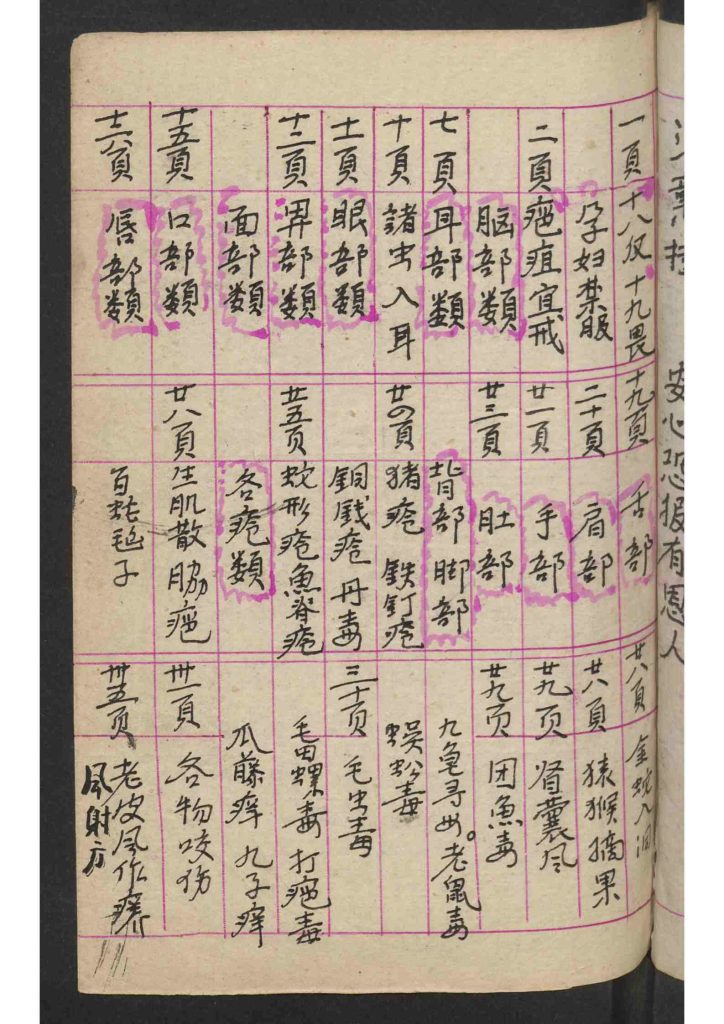 安心恐报有恩人
一頁 十八仅十九畏
孕妇禁服
二頁 疤疽宜戒
脑部類
七頁 耳部類
十頁 諸虫入耳
十一頁 眼部類
十二頁 鼻部類
面部類
十五頁 口部類
頁 唇部類
十九頁 舌部
二十頁 肩部
廿一頁 手部
廿三頁 肚部
背部 脚部
廿四頁 猪疮 铁钉疮
铜钱疮 丹毒
廿五页 蛇形疮 魚脊疮
各疮類
廿八頁 生肌散 脇疤
百蛇 子
廿八頁 金蛇入洞
廿八頁 猿猴摘果
廿九页 肾囊风
廿九页 团魚毒
九龟寻母。老鼠毒
蜈蚣毒
三十页 毛虫毒
毛田螺毒 打疤毒
瓜藤痒 九子痒
卅一頁 各物咬伤
卅五页 老皮风作癢
风射方